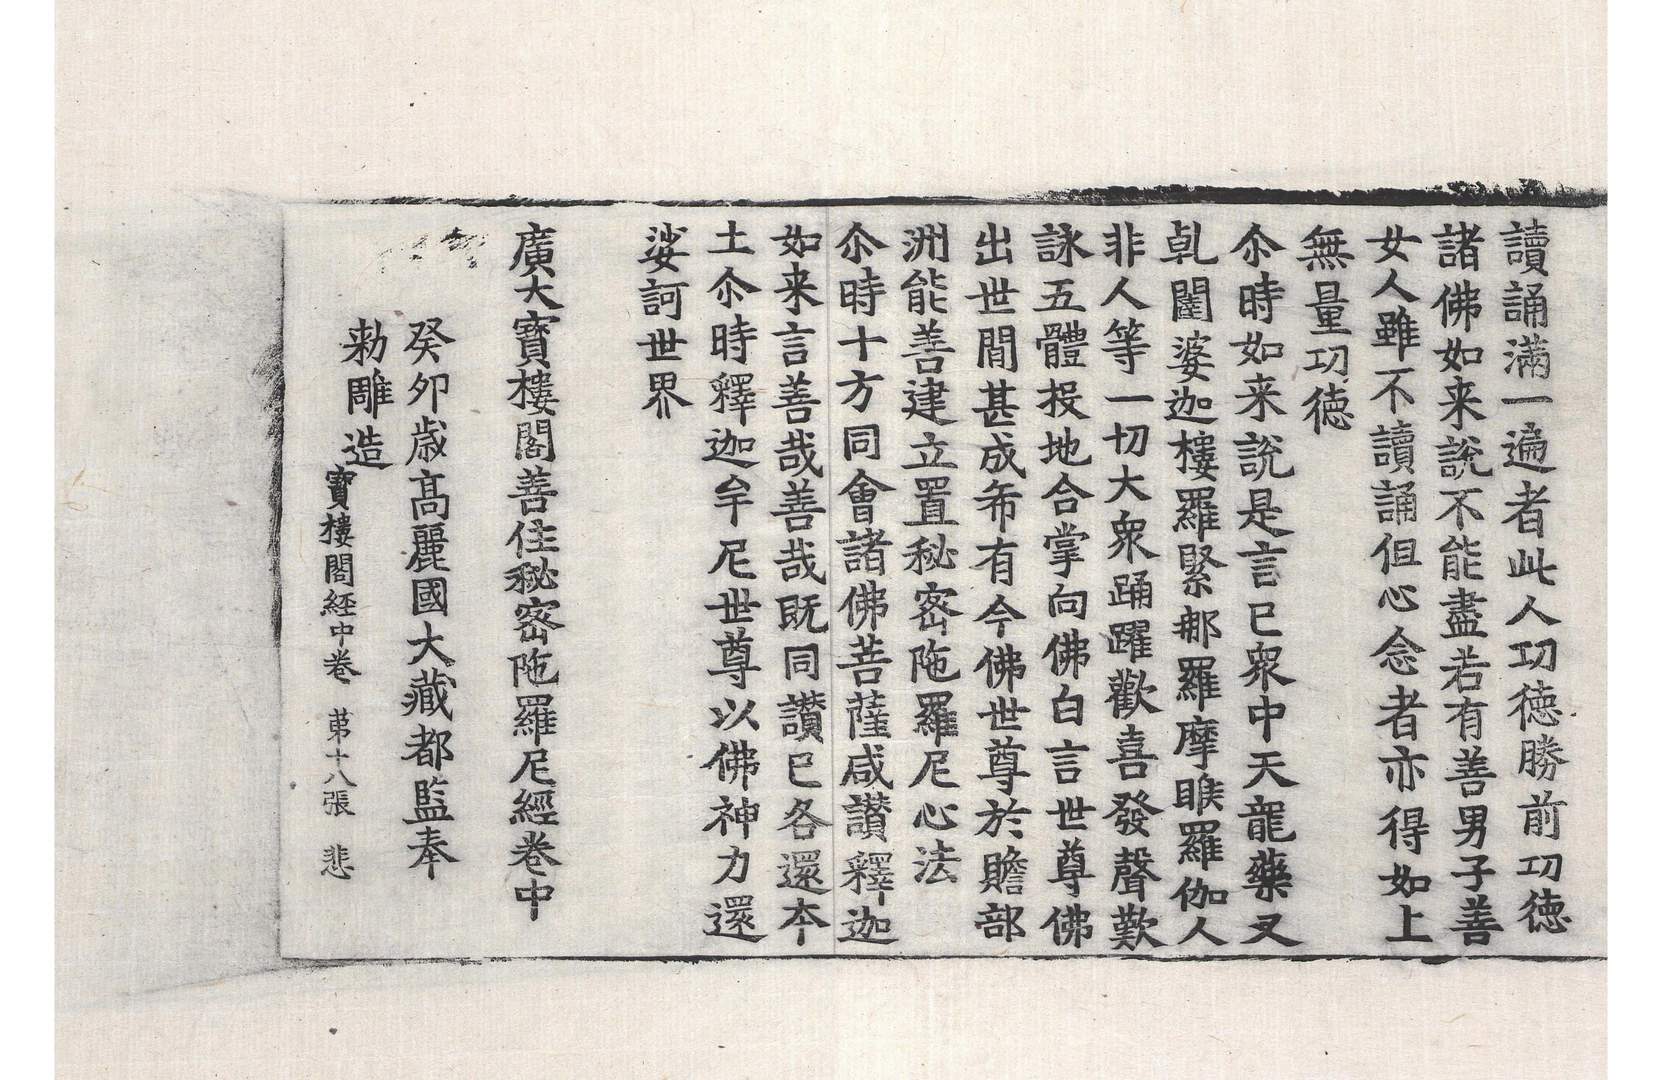 讀誦滿一遍者此人功徳勝前功徳
諸佛如来說不能盡若有善男子善
女人雖不讀誦但心念者亦得如上
無量功徳
尒時如来說是言已衆中天龍藥叉
乹闥婆迦樓羅緊那羅摩睺羅伽人
非人等一切大衆踊躍歡喜發聲歎
詠五體投地合掌向佛白言世尊佛
出世間甚成希有今佛世尊於贍部
洲能善建立置秘密陁羅尼心法
尒時十方同會諸佛菩薩咸讃釋迦
如来言善哉善哉既同讃已各還本
土尒時釋迦牟尼世尊以佛神力還
娑訶世界
廣大寶樓閣善住秘密陁羅尼經卷中
癸卯歳髙麗國大藏都監奉
勑雕造
寶樓閣経中卷　苐十八張　悲